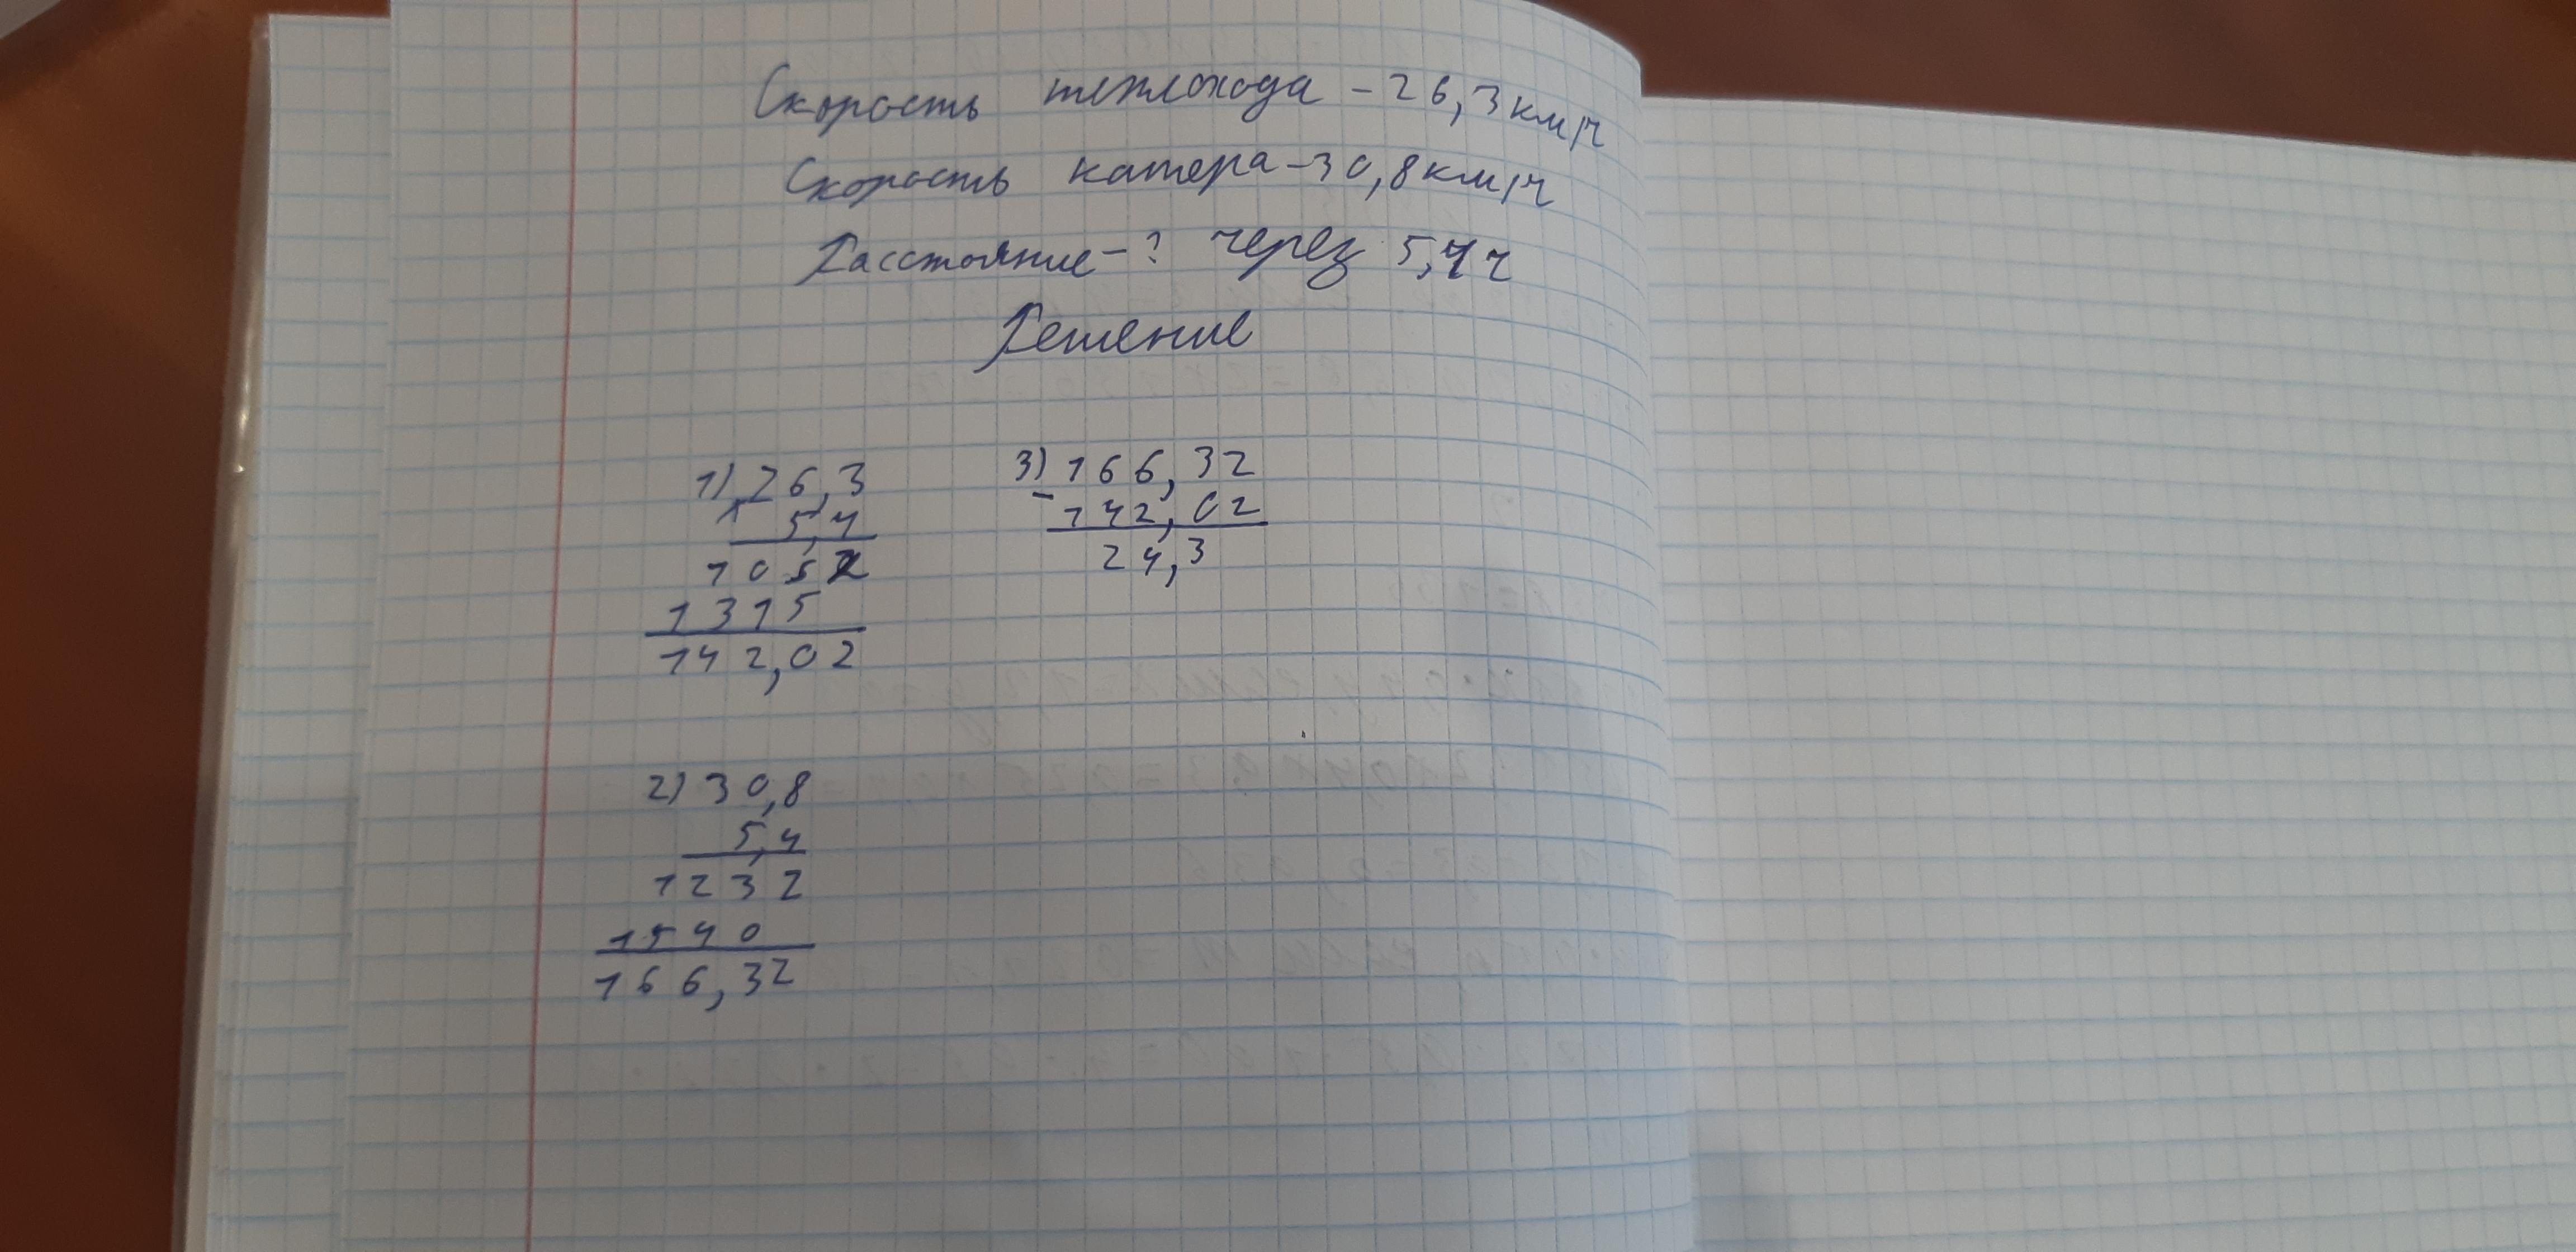 Скорость теплохода - 26,3 км/ч
Скорость катера - 30,8 км/ч
Расстояние - ? через 5,4 ч
Решение
1) 26,3
× 5,4
1052
1315
142,02
2) 30,8
5,4
1232
1540
166,32
3) 166,32
- 142,02
24,3